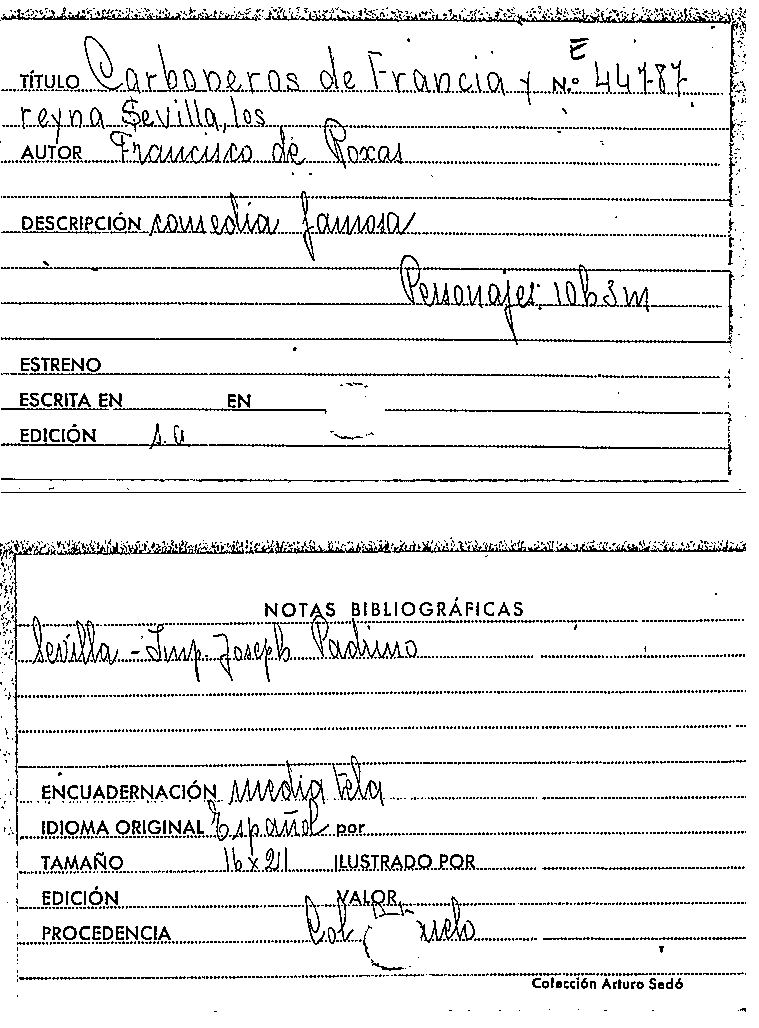 E
TÍTULO Carboneros de Francia y N.º 44787
reyna Sevilla, los
AUTOR Francisco de Roxas
DESCRIPCIÓN comedia famosa
Personajes: 10h 3m
ESTRENO
ESCRITA EN EN
EDICIÓN s.a
NOTAS BIBLIOGRÁFICAS
Sevilla - Imp. Joseph Padrino
ENCUADERNACIÓN media tela
IDIOMA ORIGINAL Español por
TAMAÑO 16 x 21 ILUSTRADO POR
EDICIÓN VALOR
PROCEDENCIA Col
Colección Arturo Sedó